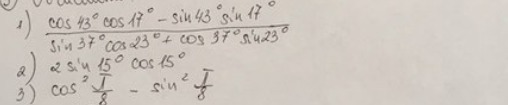 1) cos 43° cos 17° - sin 43° sin 17°
sin 37° cos 23° + cos 37° sin 23°
2) 2 sin 15° cos 15°
3) cos² π/8 - sin² π/8